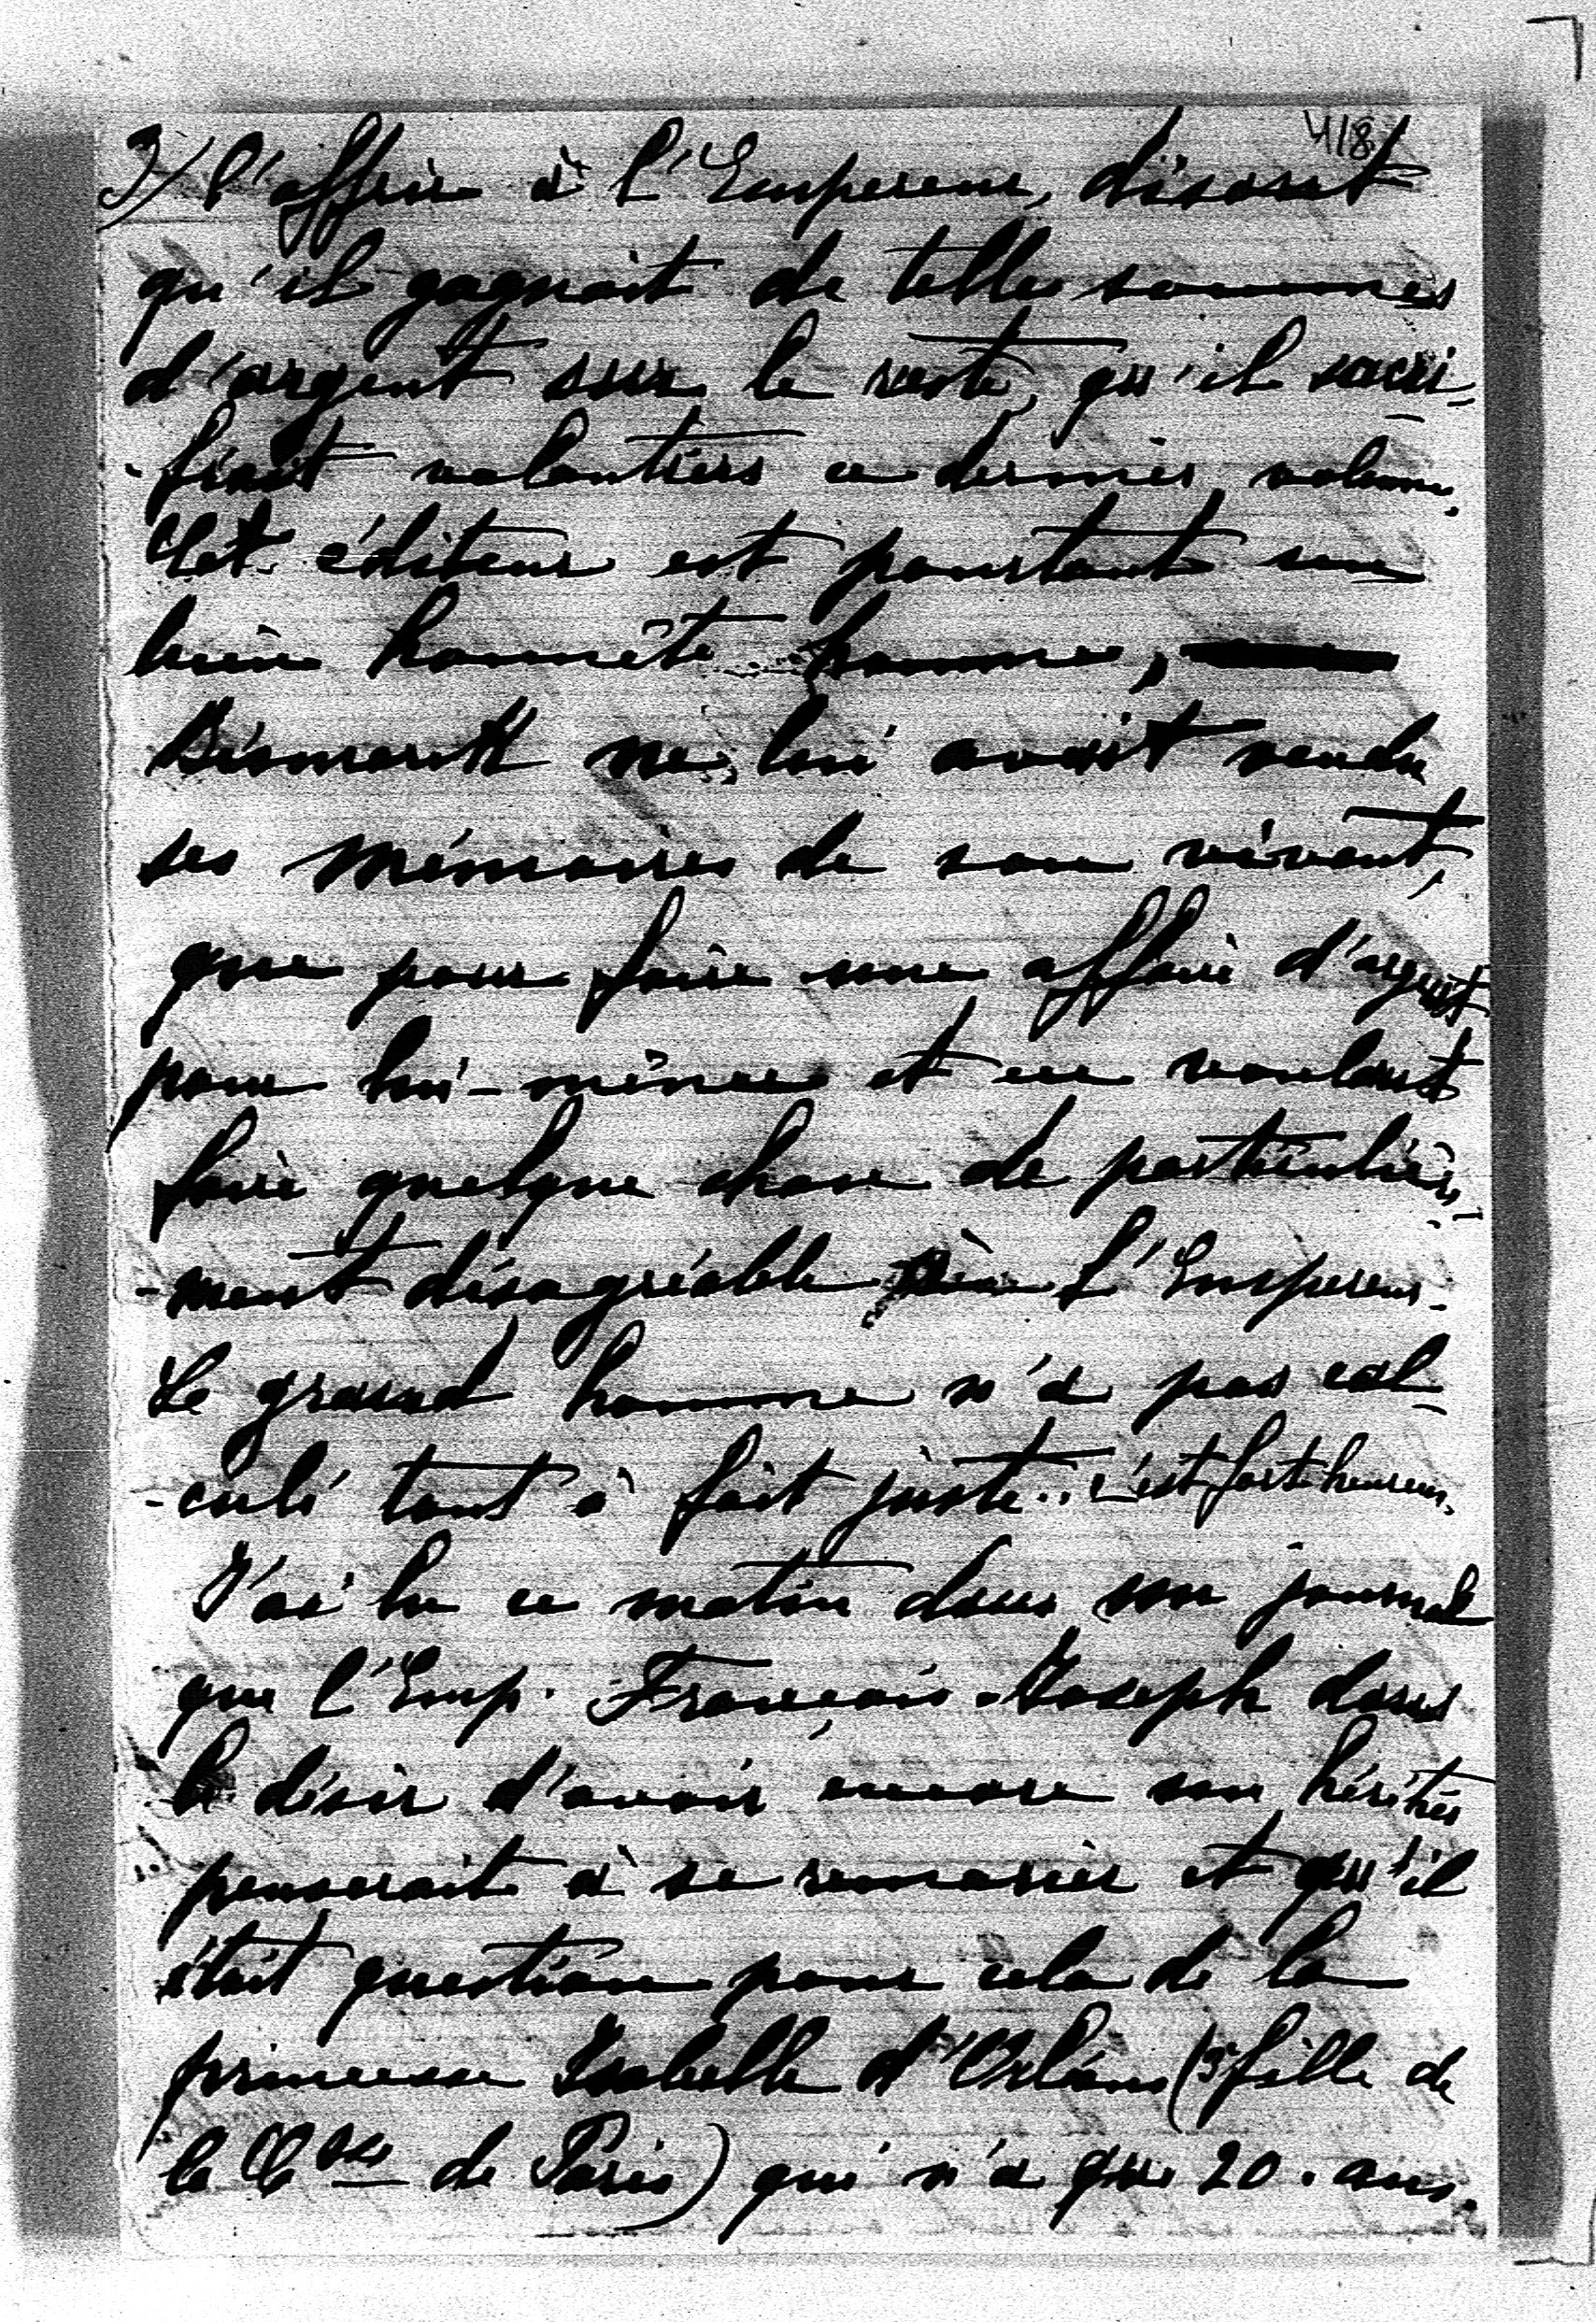 418
3) l'offrir à l'Empereur, disant
qu'il gagnait de telles sommes
d'argent sur le reste, qu'il sacri-
-fiait volontiers ce dernier volume.
Cet éditeur est pourtant un
bien honnête homme,
Bismarck ne lui avait vendu
ses mémoires de son vivant,
que pour faire une affaire d'argent
pour lui-même et en voulant
faire quelque chose de particulière-
-ment désagréable à l'Empereur.
Le grand homme n'a pas cal-
-culé tout à fait juste.. c'est fort heureux.
J'ai lu ce matin dans un journal
que l'Emp. François-Joseph dans
le désir d'avoir encore un héritier
penserait à se remarier et qu'il
était question pour cela de la
princesse Isabelle d'Orléans (3e fille de
la Ctsse de Paris) qui n'a que 20. ans.